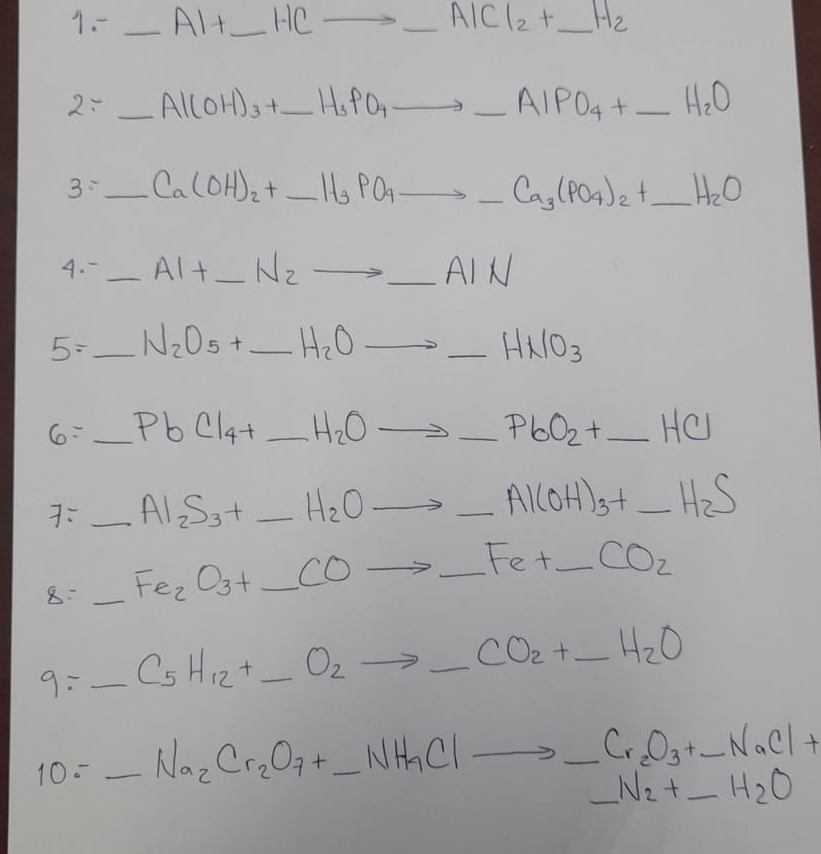 1.- __ Al + __ HC ⟶ __ AlCl₂ + __ H₂
2.- __ Al(OH)₃ + __ H₃PO₄ ⟶ __ AlPO₄ + __ H₂O
3.- __ Ca(OH)₂ + __ H₃PO₄ ⟶ __ Ca₃(PO₄)₂ + __ H₂O
4.- __ Al + __ N₂ ⟶ __ AlN
5.- __ N₂O₅ + __ H₂O ⟶ __ HNO₃
6.- __ PbCl₄ + __ H₂O ⟶ __ PbO₂ + __ HCl
7.- __ Al₂S₃ + __ H₂O ⟶ __ Al(OH)₃ + __ H₂S
8.- __ Fe₂O₃ + __ CO ⟶ __ Fe + __ CO₂
9.- __ C₅H₁₂ + __ O₂ ⟶ __ CO₂ + __ H₂O
10.- __ Na₂Cr₂O₇ + __ NH₄Cl ⟶ __ Cr₂O₃ + __ NaCl +
__ N₂ + __ H₂O